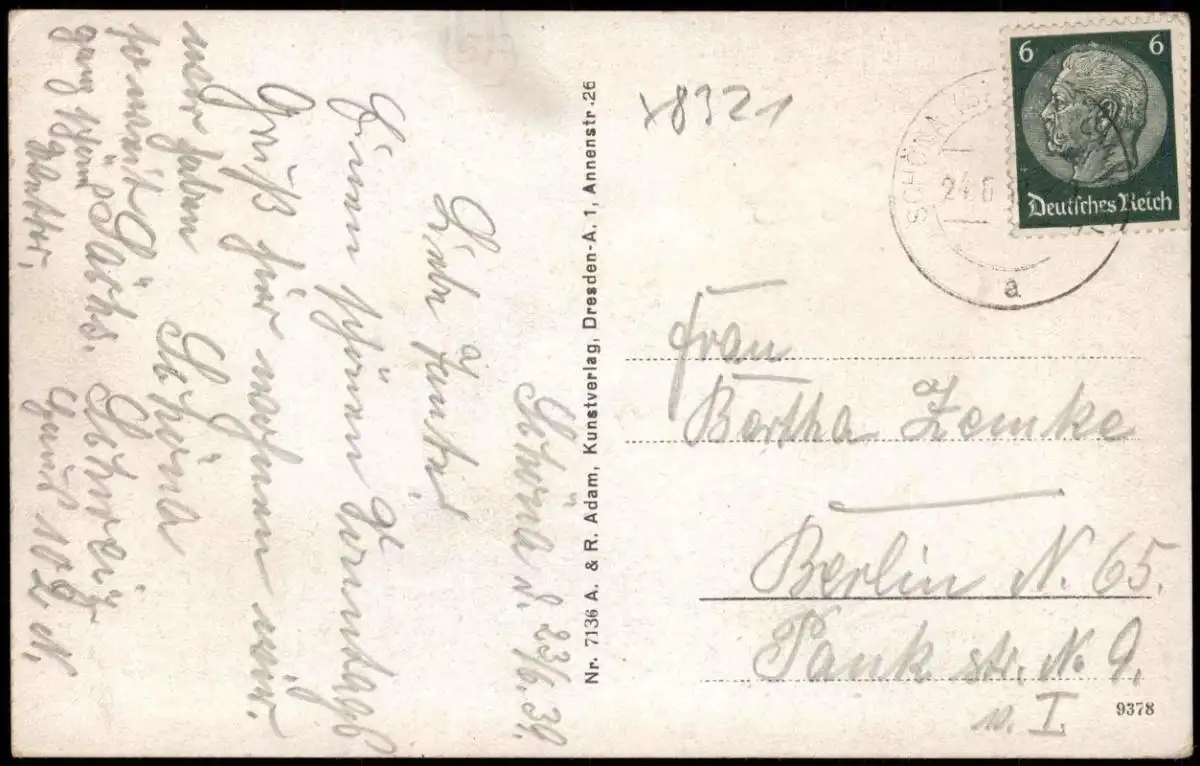 Schöna d. 23/6.39.
Liebe Tante!
Einen schönen Sonntags
Gruß hier wohnen wir.
Schöna
wir haben
so weit Sächs. Schweiz
ganz schön
Wetter,
Nr. 7136 A. & R. Adam, Kunstverlag, Dresden-A. 1, Annenstr. 26
x8321
6 6
Deutsches Reich
SCHÖNA
24.6
a
Frau
Bertha Zemke
Berlin N. 65.
Pankstr. N. 9.
v. I
9378